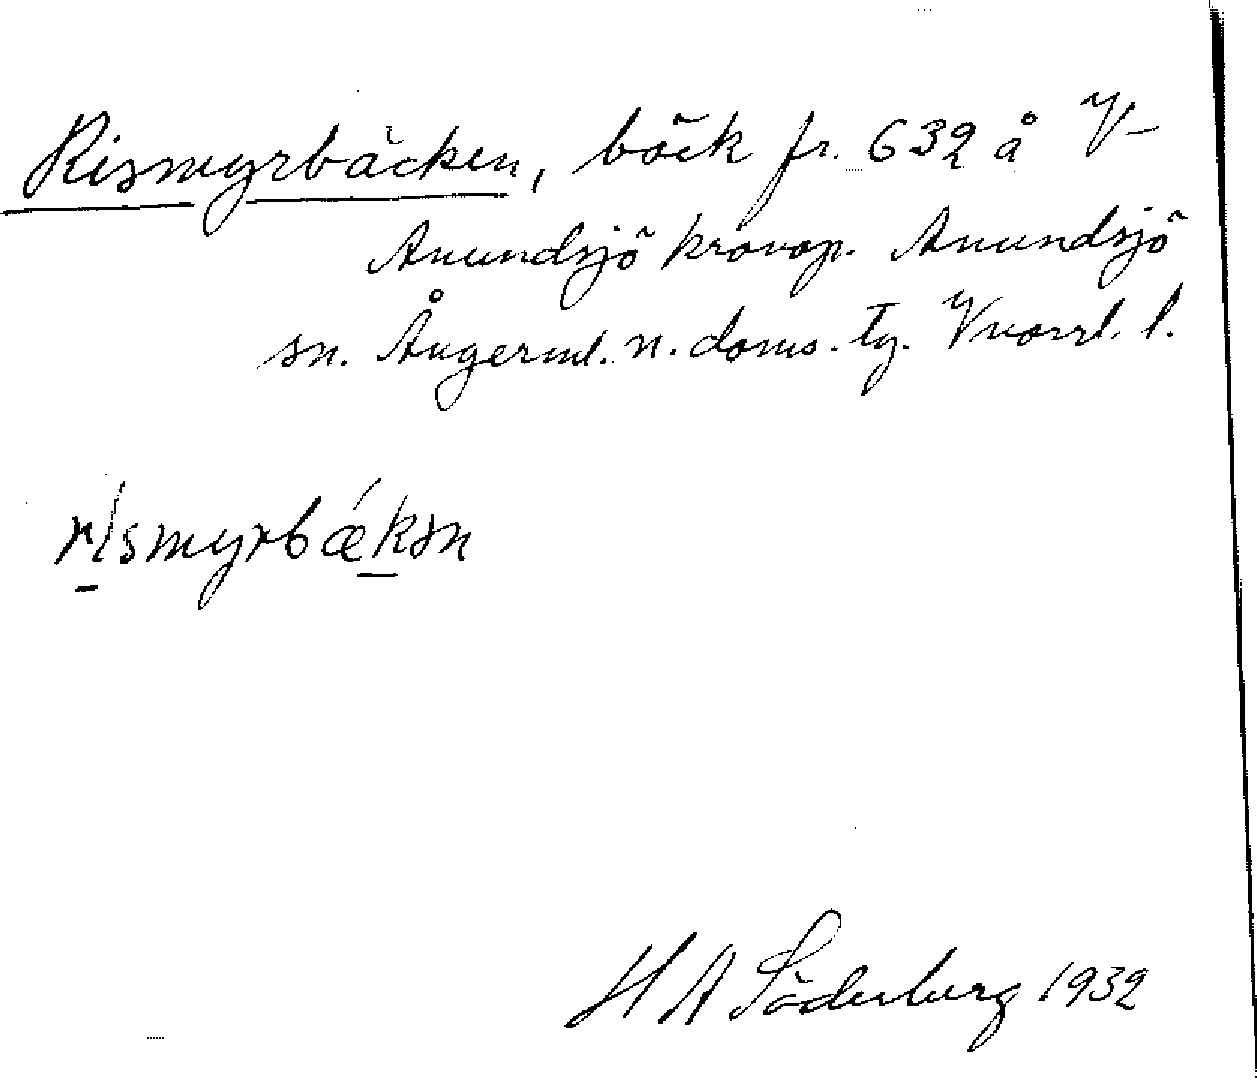 Rismyrbäcken, bäck fr. 632 å V-
Anundsjö kronop. Anundsjö
sn. Ångerml. n. doms. tg. Vnorrl. l.
ri̱smyrbǽḵən
H A Söderberg 1932